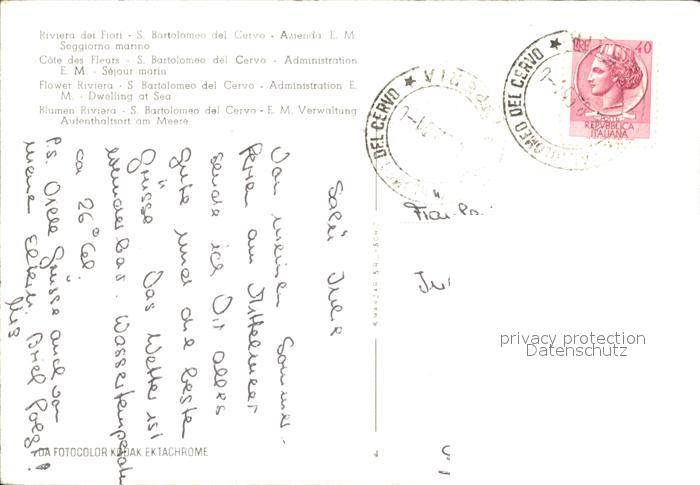 Riviera dei Fiori - S. Bartolomeo del Cervo - Azienda E. M.
Soggiorno marino
Côte des Fleurs - S. Bartolomeo del Cervo - Administration
E. M. - Séjour marin
Flower Riviera - S. Bartolomeo del Cervo - Administration E.
M. - Dwelling at Sea
Blumen Riviera - S. Bartolomeo del Cervo - E. M. Verwaltung
Aufenthaltsort am Meere
Salü
Von meinen Sommer-
ferien am Mittelmeer
sende ich Dir alles
gute und die besten
Grüsse. Das Wetter ist
wunderbar. Wassertemperatur
ca 26° Cel.
P.S. Viele Grüsse auch von
meinen Eltern. Brief folgt!
DA FOTOCOLOR KODAK EKTACHROME
4
DEL CERVO
BARTOLOMEO DEL CERVO
LIRE 40
POSTE
REPVBBLICA
ITALIANA
privacy protection
Datenschutz